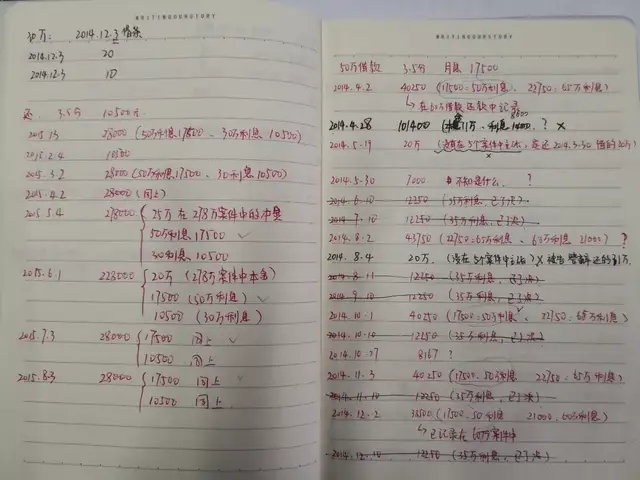 WRITINGOURSTORY
30万: 2014.12.3 借条
2014.12.3 20
2014.12.3 10
3.5分 10500元
2015.1.3 28000 (50万利息17500、30万利息10500)
2015.2.4 10500
2015.3.2 28000 (50万利息17500、30利息10500)
2015.4.2 28000 (同上)
2015.5.4 278000 25万在278万案件中的本息
50万利息17500 ✓
30利息10500
2015.6.1 228000 20万 (278万案件中本金)
17500 (50万利息) ✓
10500 (30万利息)
2015.7.3 28000 17500 同上 ✓
10500 同上
2015.8.3 28000 17500 同上 ✓
10500 同上
WRITINGOURSTORY
50万借款 3.5分 月息 17500
2014.4.2 40250 (17500:50万利息、22750:65万利息)
↳ 在60万借款还款中记录
2014.4.28 101400 万、利息1400 ? ×
2014.5.19 20万
2014.5.30 7000 不知是什么 ?
2014.6.10 12250 (35万利息,已了决)
2014.7.10 12250 (35万利息,已了决)
2014.8.2 43750 (22750:65万利息、60万利息21000) ?
2014.8.4 20万
2014.8.11 12250 (35万利息,已了决)
2014.9.10 12250 (35万利息,已了决)
2014.10.1 40250 (17500:50万利息、22750:65万利息)
2014.10.10 12250 (35万利息,已了决)
2014.10.27 8167 ?
2014.11.3 40250 (17500:50利息 22750:65万利息)
2014.11.10 12250 (35万利息,已了决)
2014.12.2 38500 (17500:50利息 21000:60万利息)
↳ 已记录在60万案件中
2014.12.10 12250 (35万利息,已了决)